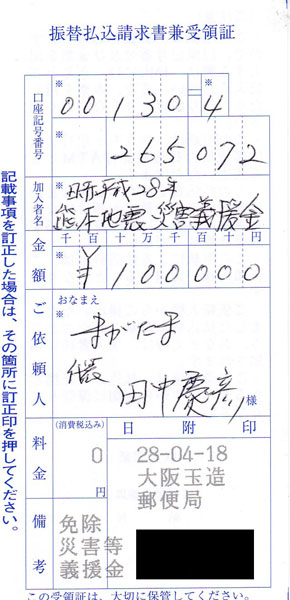 振替払込請求書兼受領証
口座記号番号
※
00130-4
※
265072
加入者名
※
日赤平成28年
熊本地震災害義援金
金額
千百十万千百十円
※
¥100000
ご依頼人
おなまえ
※
まがたま
田中慶彦
様
料金
(消費税込み)
0
円
日附印
28-04-18
大阪玉造
郵便局
備考
免除
災害等
義援金
記載事項を訂正した場合は、その箇所に訂正印を押してください。
この受領証は、大切に保管してください。